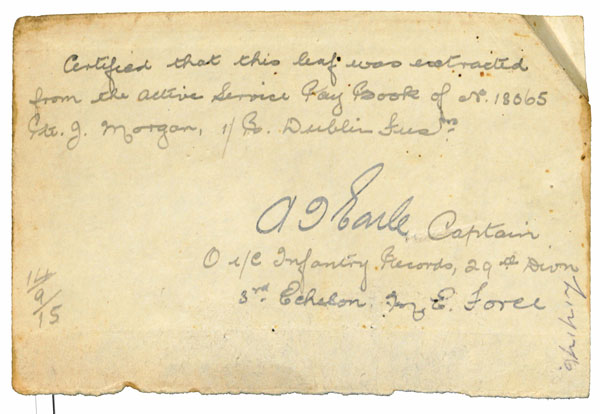 Certified that this leaf was extracted
from the Active Service Pay Book of No. 18065
Pte. J. Morgan, 1/R. Dublin Fusrs
Earle Captain
O i/c Infantry Records, 29th Divn
3rd Echelon M. E. Force
14/9/15